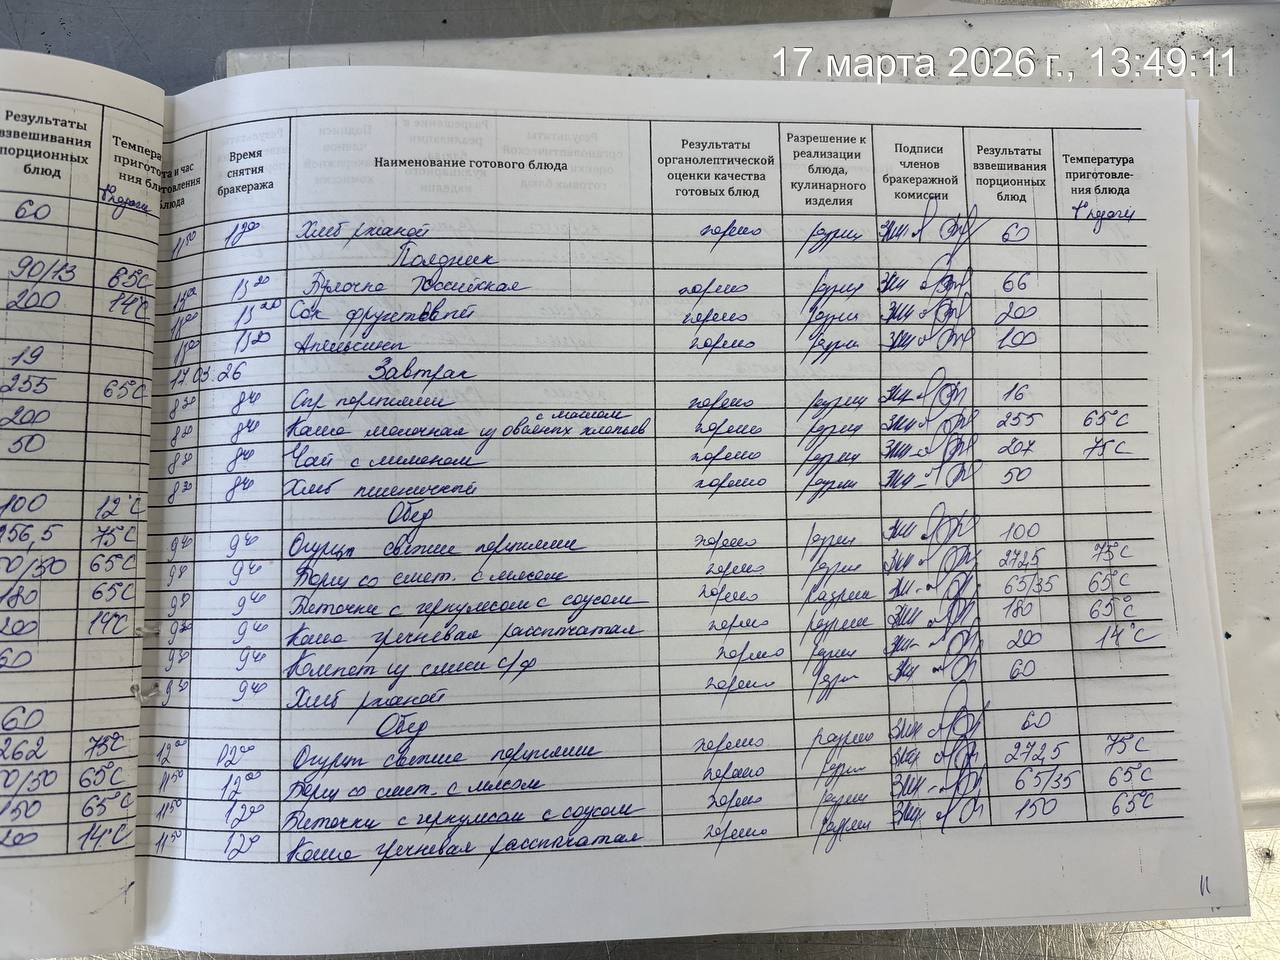 17 марта 2026 г., 13:49:11
Результаты взвешивания порционных блюд
60
90/13 65°С
200 14°С
19
255 65°С
200
50
100 12°С
256,5 75°С
65°С
180 65°С
200 14°С
60
60
262 75°С
65°С
150 65°С
200 14°С
Время снятия бракеража
Наименование готового блюда
Результаты органолептической оценки качества готовых блюд
Разрешение к реализации блюда, кулинарного изделия
Подписи членов бракеражной комиссии
Результаты взвешивания порционных блюд
Температура приготовле-ния блюда
t° подачи
11 50 12 00 Хлеб ржаной хорошо разреш 60
Полдник
15 00 15 20 Булочка Российская хорошо разреш 66
15 00 15 20 Сок фруктовый хорошо разреш 200
15 00 15 20 Апельсины хорошо разреш 100
17.03.26 Завтрак
8 30 8 40 Сыр порциями хорошо разреш 16
8 30 8 40 Каша молочная из овсяных хлопьев с маслом хорошо разреш 255 65°С
8 30 8 40 Чай с лимоном хорошо разреш 207 75°С
8 30 8 40 Хлеб пшеничный хорошо разреш 50
Обед
9 30 9 40 Огурцы свежие порциями хорошо разреш 100
9 30 9 40 Борщ со смет. с мясом хорошо разреш 272,5 75°С
9 30 9 40 Биточки с геркулесом с соусом хорошо разреш 65/35 65°С
9 30 9 40 Каша гречневая рассыпчатая хорошо разреш 180 65°С
9 30 9 40 Компот из смеси с/ф хорошо разреш 200 14°С
9 30 9 40 Хлеб ржаной хорошо разр 60
Обед
12 00 12 00 Огурцы свежие порциями хорошо разреш 60
11 50 12 00 Борщ со смет. с мясом хорошо разреш 272,5 75°С
11 50 12 00 Биточки с геркулесом с соусом хорошо разреш 65/35 65°С
11 50 12 00 Каша гречневая рассыпчатая хорошо разреш 150 65°С
11